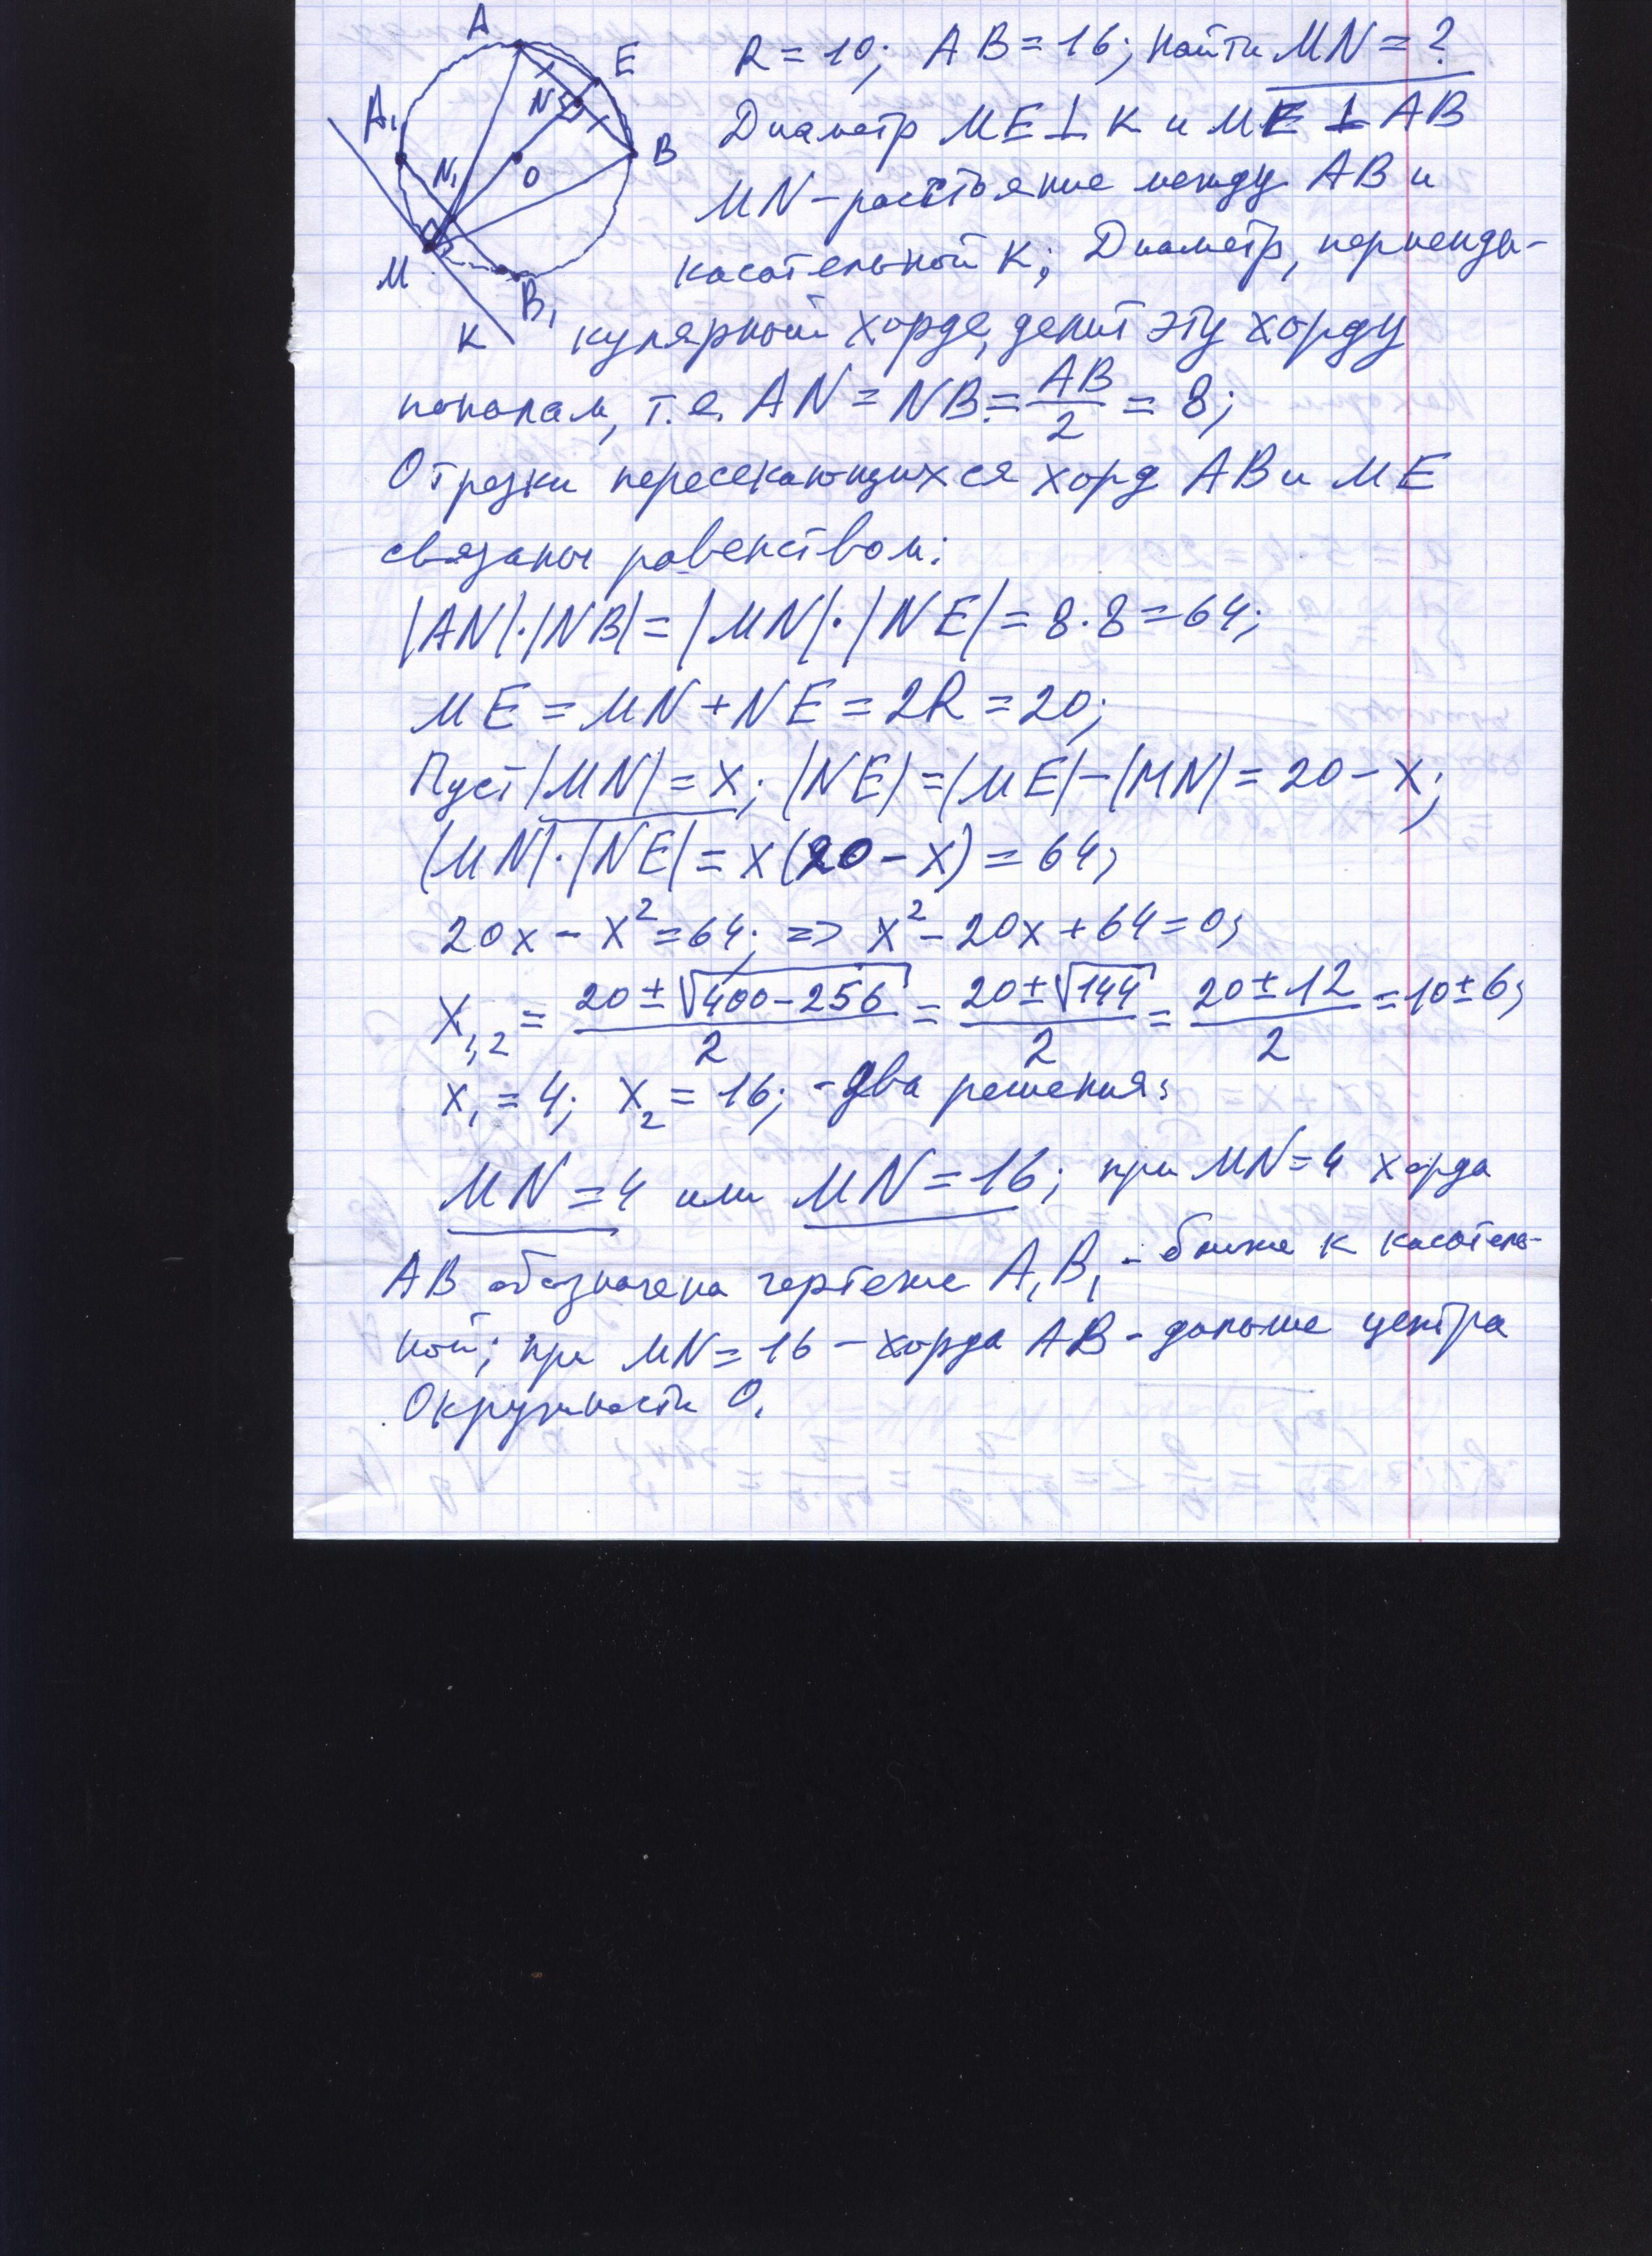 A
E
A₁
N
N₁
O
B
M
B₁
K
R = 10; AB = 16; найти MN = ?
Диаметр ME ⊥ K и ME ⊥ AB
MN – расстояние между AB и
касательной K; Диаметр, перпенди-
кулярный хорде, делит эту хорду
пополам, т.е. AN = NB = AB/2 = 8;
Отрезки пересекающихся хорд AB и ME
связаны равенством:
|AN|·|NB| = |MN|·|NE| = 8·8 = 64;
ME = MN + NE = 2R = 20;
Пуст |MN| = x; |NE| = |ME| – |MN| = 20 – x;
|MN|·|NE| = x(20 – x) = 64;
20x – x² = 64; => x² – 20x + 64 = 0;
x₁,₂ = (20 ± √(400 – 256))/2 = (20 ± √144)/2 = (20 ± 12)/2 = 10 ± 6;
x₁ = 4; x₂ = 16; – два решения;
MN = 4 или MN = 16; при MN = 4 хорда
AB обозначена чертеже A₁B₁ – ближе к касатель-
ной; при MN = 16 – хорда AB – дальше центра
Окружности O.